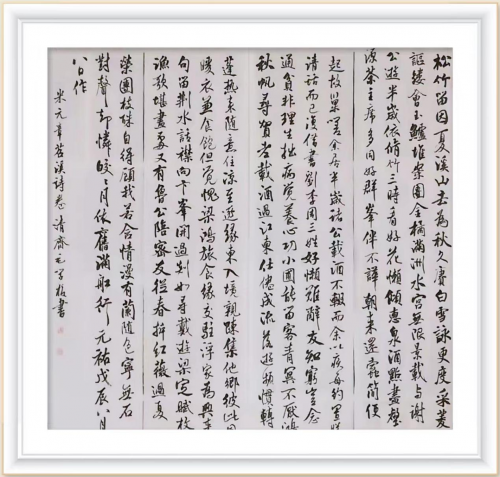 松竹留因夏溪山去為秋久賡白雪詠更度采菱
謳縷會玉鱸堆案團金橘滿洲水宮無限景載与謝
公遊半歲依脩竹三時看好花懶傾惠泉酒點盡壑
源茶主席多同好群峯伴不譁朝来還蠹簡便
起故巢嗟余居半歲諸公載酒不輟而余以疾每約置膳
清話而已復借書劉李周三姓好懶難辭友知窮豈念
通貧非理生拙病覺養心功小圃能留客青冥不厭鴻
秋帆尋賀老載酒過江東仕倦成流落遊頻慣轉
蓬熱来随意住涼至逐緣東入境親踈集他鄉彼此同
暖衣兼食飽但覺愧梁鴻旅食緣交駐浮家為興来
句留荊水話襟向卞峯開過剡如尋戴遊梁定賦枚
漁歌堪畫處又有魯公陪密友從春拆紅薇過夏
榮團枝殊自得顧我若含情漫有蘭随色寧無石
對聲却憐皎皎月依舊滿船行元祐戊辰八月
八日作
米元章苕溪詩卷清齋元格書